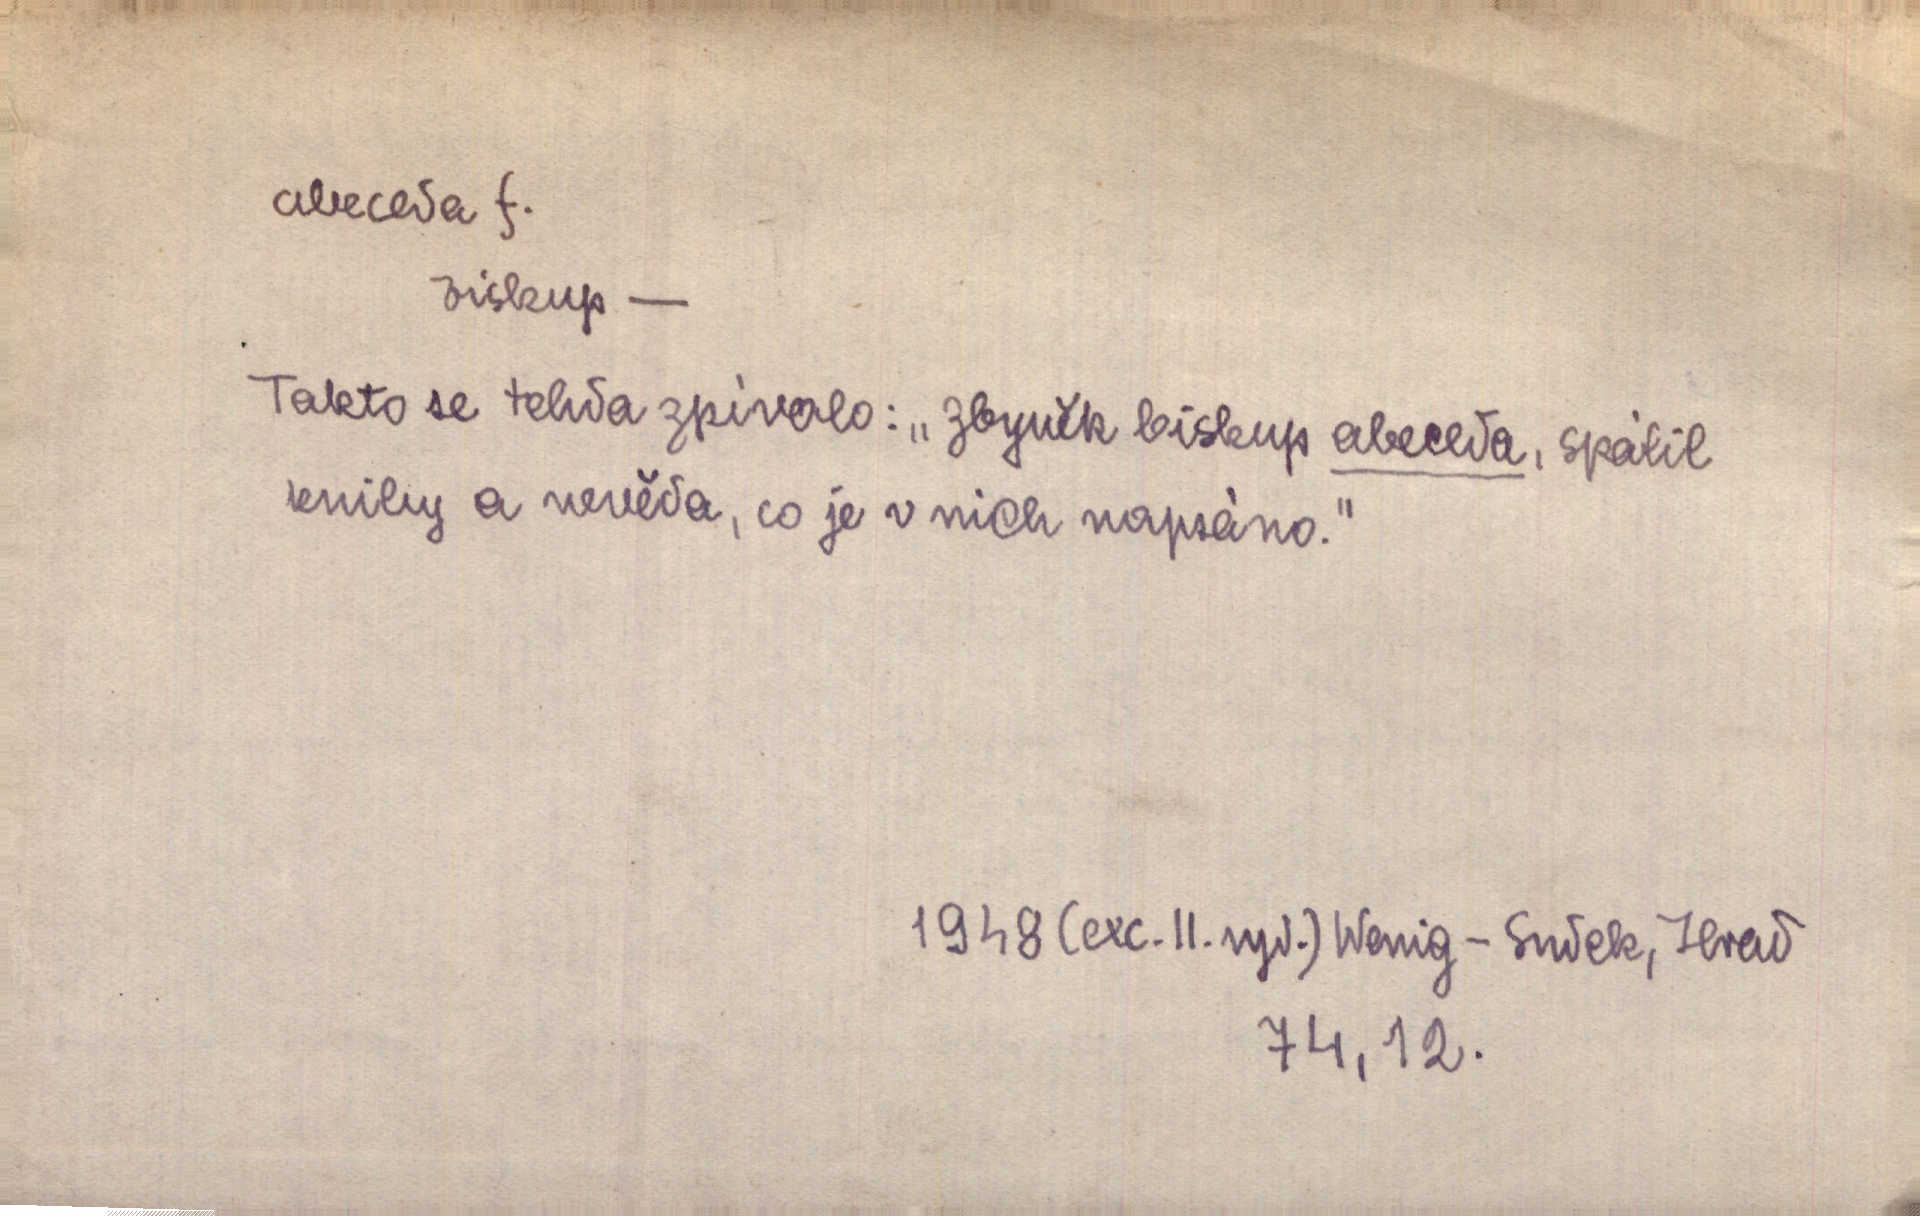 abeceda f.
biskup —
Takto se tehda zpívalo: „Zbyněk biskup abeceda, spálil
knihy a nevěda, co je v nich napsáno."
1948 (exc. II. vyd.) Wenig – Sudek, Hrad
74, 12.